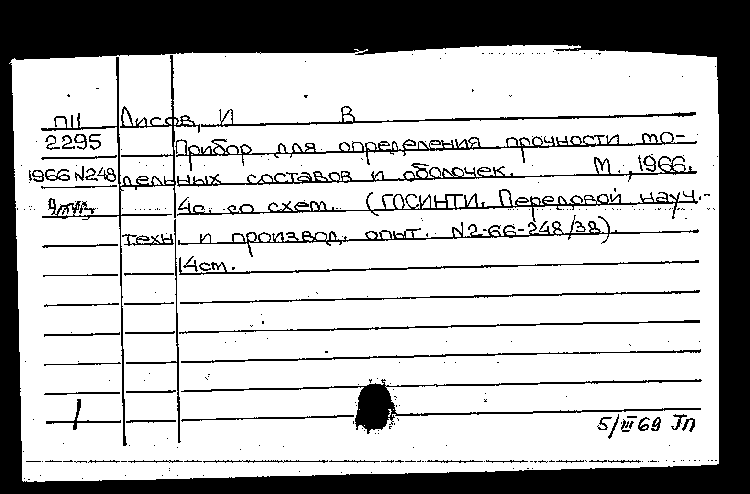 П11 Лисов, И В
2295 Прибор для определения прочности мо-
1966 N248 дельных составов и оболочек. М., 1966.
4с. со схем. (ГОСИНТИ. Передовой науч.-
техн. и производ. опыт. N2-66-248/38).
14см.
5/III 69 Гп